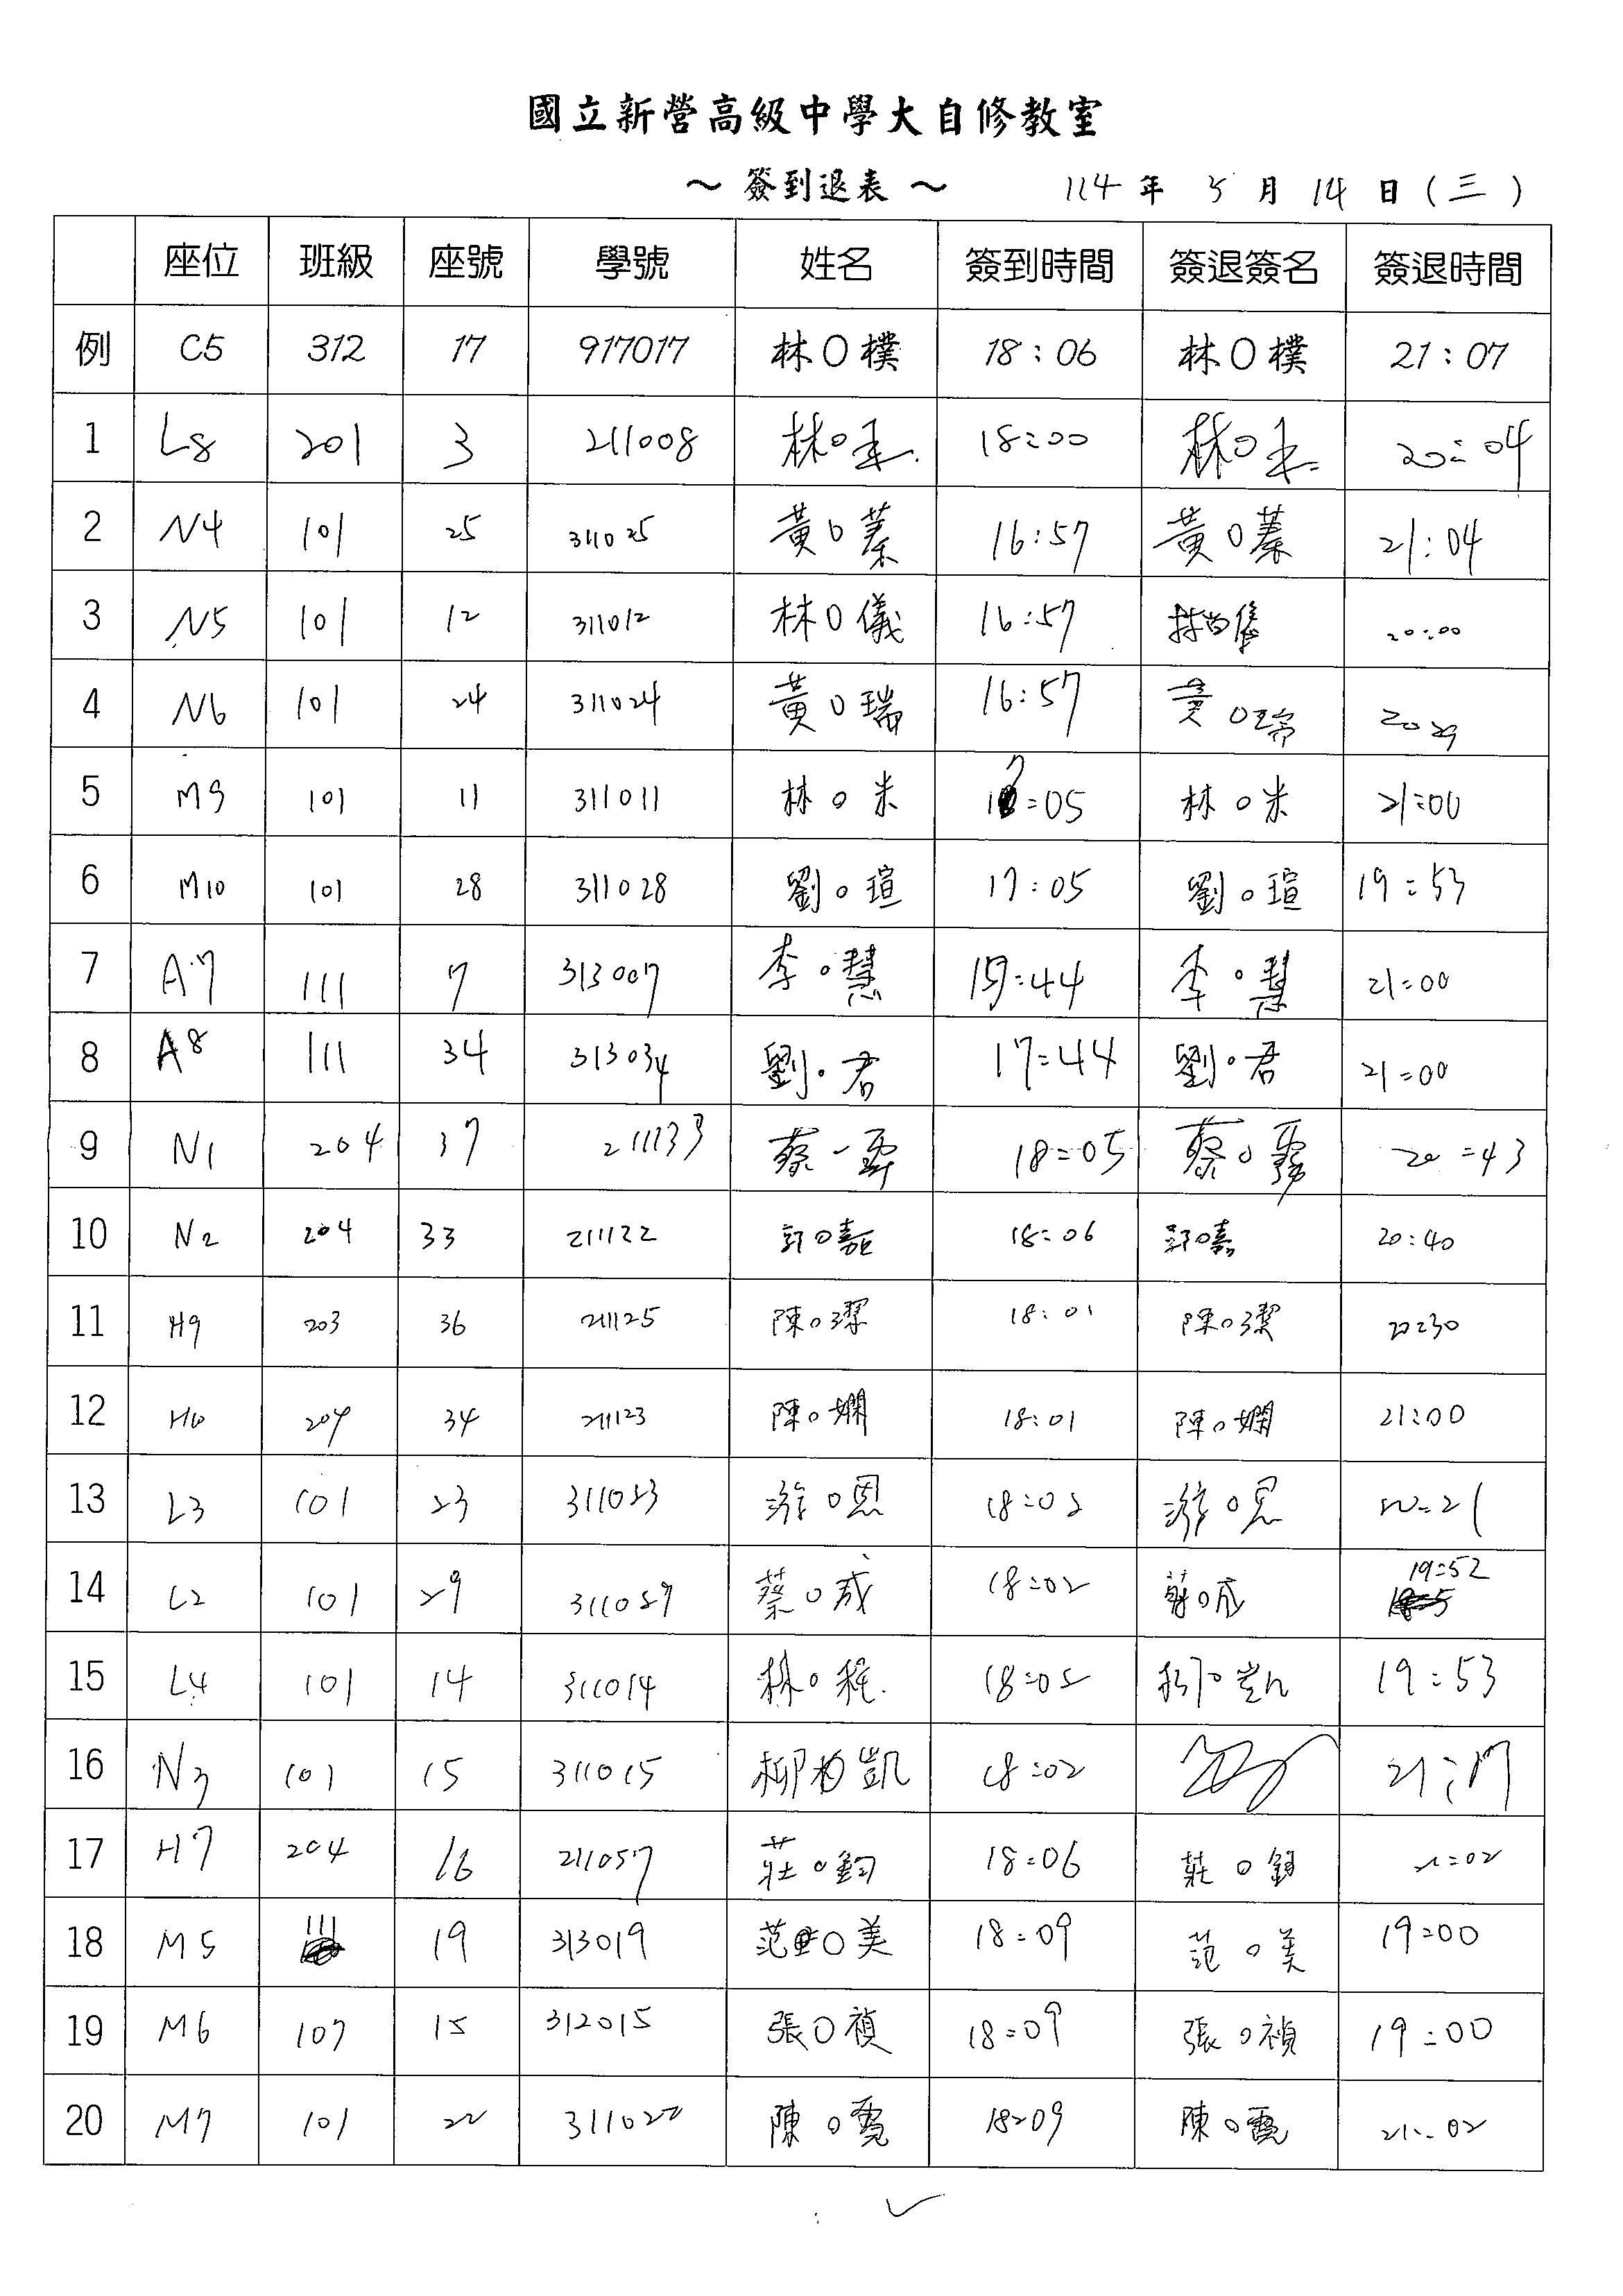 國立新營高級中學大自修教室
～ 簽到退表 ～ 114 年 5 月 14 日 (三)
座位 班級 座號 學號 姓名 簽到時間 簽退簽名 簽退時間
例 C5 312 17 917017 林○樸 18:06 林○樸 21:07
1 L8 201 3 211008 林○ 18:00 林○ 20:04
2 N4 101 25 311025 黃○蓁 16:57 黃○蓁 21:04
3 N5 101 12 311012 林○儀 16:57 20:00
4 N6 101 24 311024 黃○瑞 16:57 黃○瑞 2029
5 M9 101 11 311011 林○米 17:05 林○米 21:00
6 M10 101 28 311028 劉○瑄 17:05 劉○瑄 19:53
7 A7 111 7 313007 李○慧 17:44 李○慧 21:00
8 A8 111 34 313034 劉○君 17:44 劉○君 21:00
9 N1 204 37 211133 蔡 18:05 蔡○ 20:43
10 N2 204 33 211122 郭○嘉 18:06 郭○嘉 20:40
11 H9 203 36 211125 陳○潔 18:01 陳○潔 20:30
12 H10 204 34 211123 陳○嫻 18:01 陳○嫻 21:00
13 L3 101 23 311023 游○恩 18:02 游○恩 20:21
14 L2 101 29 311029 蔡○成 18:02 蔡○成 19:52
15 L4 101 14 311014 林○ 18:02 19:53
16 N3 101 15 311015 柳○凱 18:02 21:17
17 H7 204 16 211057 莊○鈞 18:06 莊○鈞 21:02
18 M5 111 19 313019 范○美 18:09 范○美 19:00
19 M6 107 15 312015 張○禎 18:09 張○禎 19:00
20 M7 101 22 311022 陳○霓 18:09 陳○霓 21:02